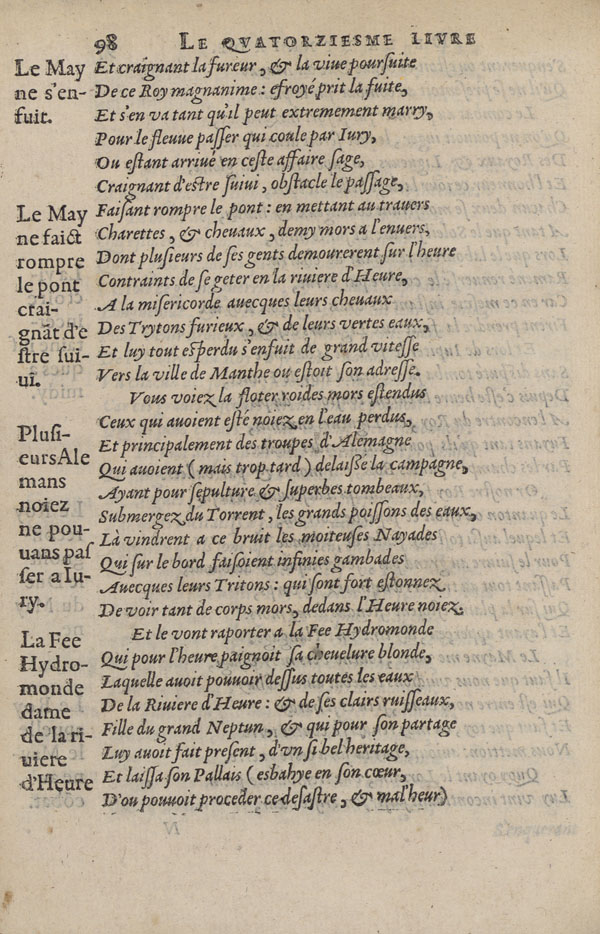 98 LE QVATORZIESME LIVRE
Le May
ne s'en-
fuit.
Et craignant la fureur, & la viue poursuite
De ce Roy magnanime : efroyé prit la fuite,
Et s'en va tant qu'il peut extremement marry,
Pour le fleuue passer qui coule par Iury,
Ou estant arriué en ceste affaire sage,
Craignant d'estre suiui, obstacle le passage,
Le May
ne faict
rompre
le pont
crai-
gnāt d'e
stre sui-
ui.
Faisant rompre le pont : en mettant au trauers
Charettes, & cheuaux, demy mors a l'enuers,
Dont plusieurs de ses gents demourerent sur l'heure
Contraints de se geter en la riuiere d'Heure,
A la misericorde auecques leurs cheuaux
Des Trytons furieux, & de leurs vertes eaux,
Et luy tout esperdu s'enfuit de grand vitesse
Vers la ville de Manthe ou estoit son adresse.
Vous voiez la floter roides mors estendus
Ceux qui auoient esté noiez en l'eau perdus,
Plusi-
eurs Ale
mans
noiez
ne pou-
uans pas
ser a Iu-
ry.
Et principalement des troupes d'Alemagne
Qui auoient (mais trop tard) delaissé la campagne,
Ayant pour sepulture & superbes tombeaux,
Submergez du Torrent, les grands poissons des eaux,
Là vindrent a ce bruit les moiteuses Nayades
Qui sur le bord faisoient infinies gambades
Auecques leurs Tritons : qui sont fort estonnez
De voir tant de corps mors, dedans l'Heure noiez.
La Fee
Hydro-
monde
dame
de la ri-
uiere
d'Heure
Et le vont raporter a la Fee Hydromonde
Qui pour l'heure paignoit sa cheuelure blonde,
Laquelle auoit pouuoir dessus toutes les eaux
De la Riuiere d'Heure : & de ses clairs ruisseaux,
Fille du grand Neptun, & qui pour son partage
Luy auoit fait present, d'vn si bel heritage,
Et laissa son Pallais (esbahye en son cœur,
D'ou pouuoit proceder ce desastre, & mal'heur)